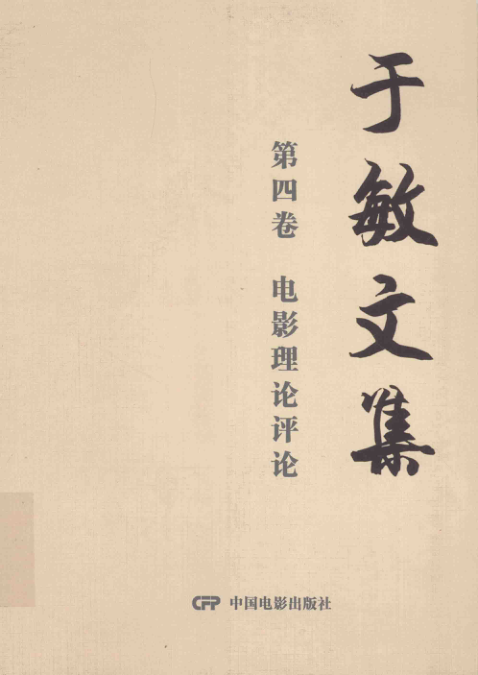 于敏文集
第四卷 电影理论评论
CFP 中国电影出版社